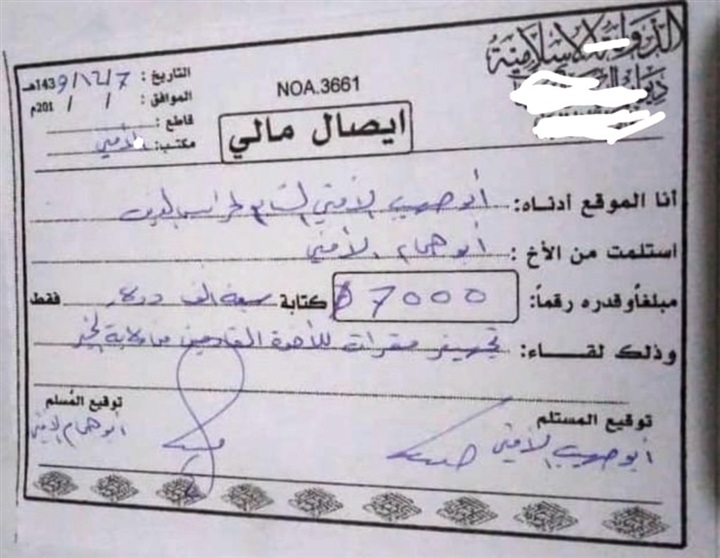 الدولة الإسلامية
ديوان
التاريخ : 7/12/1439هـ
الموافق : / / 201م
NOA.3661
قاطع :
مكتب: الأمني
ايصال مالي
أنا الموقع أدناه: أبو صهيب الأمني التابع لحراس الدين
استلمت من الأخ : أبو همام الأمني
مبلغاً وقدره رقماً: 7000$ كتابة سبعة الف دولار فقط
وذلك لقاء: تجهيز مقرات للأخوة القادمين من ولاية الخير
توقيع المستلم
أبو صهيب الأمني
توقيع المُسلم
ابو همام الأمني